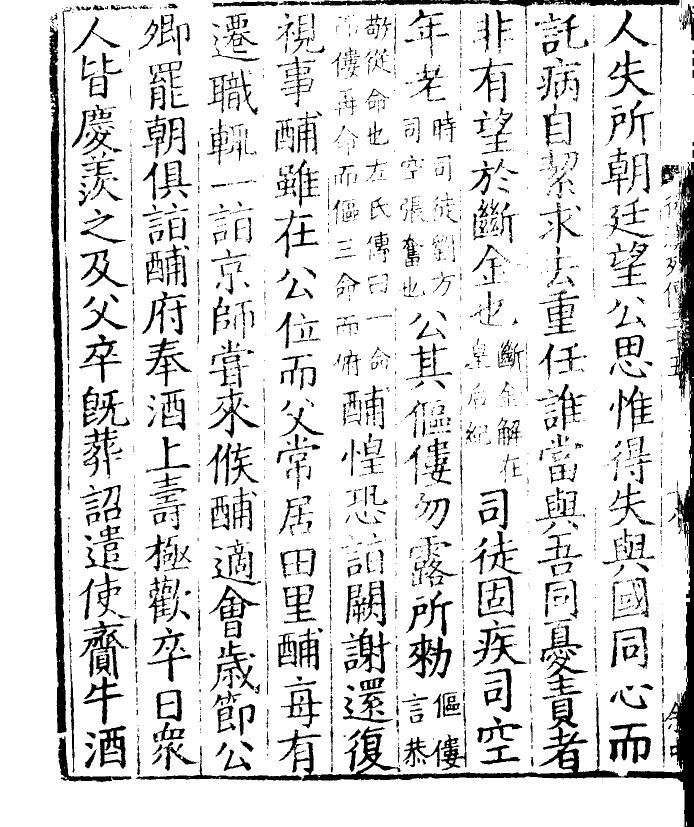 人失所朝廷望公思惟得失與國同心而
託病自絜求去重任誰當與吾同憂責者
非有望於斷金也斷金解在皇后紀司徒固疾司空
年老時司徒劉方司空張奮也公其傴僂勿露所勑傴僂言恭
敬從命也左氏傳曰一命而僂再命而傴三命而俯酺惶恐詣闕謝還復
視事酺雖在公位而父常居田里酺每有
遷職輒一詣京師嘗來候酺適會歲節公
卿罷朝俱詣酺府奉酒上壽極歡卒日衆
人皆慶羨之及父卒旣葬詔遣使齎牛酒